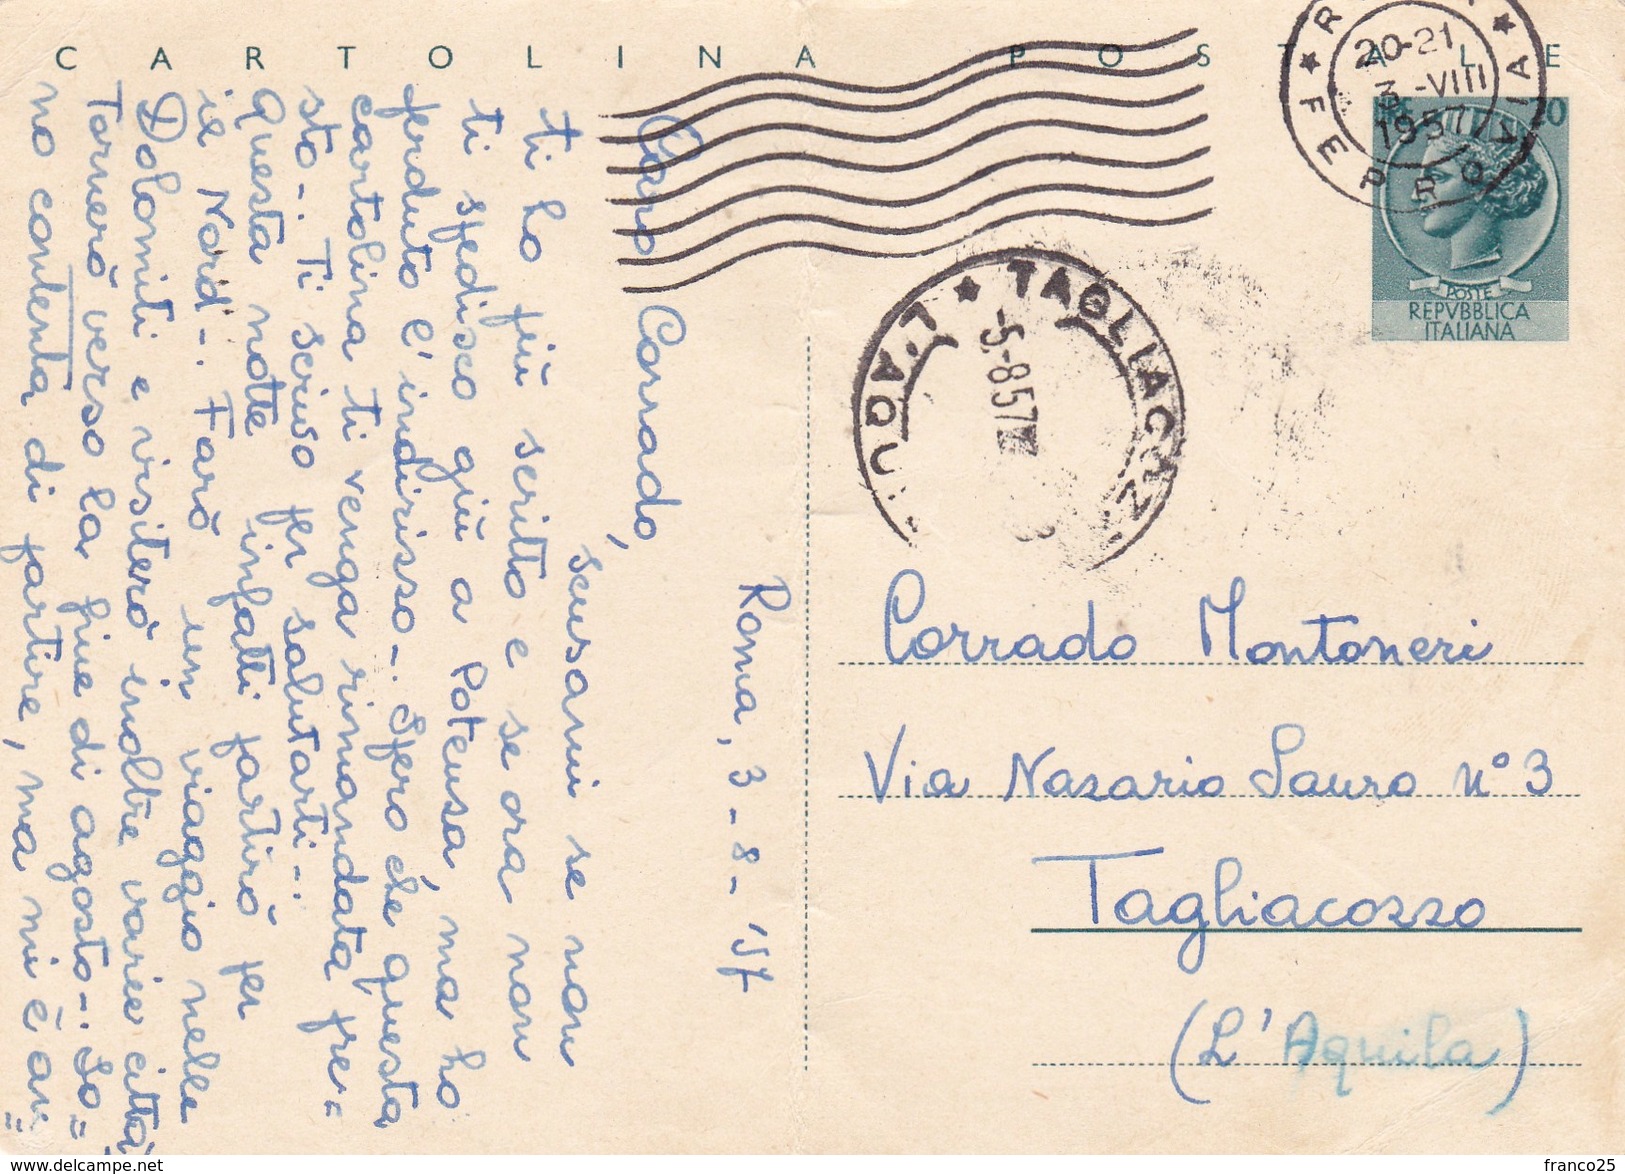 CARTOLINA POSTALE
ROMA FERROVIA
20-21
3 -VIII
1957
20
POSTE
REPVBBLICA
ITALIANA
TAGLIACOZZO
L'AQUILA
-5.-8.57
Roma, 3-8-'57
Caro Corrado,
scusami se non
ti ho più scritto e se ora non
ti spedisco giù a Potenza, ma ho
perduto l'indirizzo-. Spero che questa
cartolina ti venga rimandata pre=
sto-. Ti scrivo per salutarti-.
Questa notte infatti partirò per
il Nord-. Farò un viaggio nelle
Dolomiti e visiterò inoltre varie città
Tornerò verso la fine di agosto-. So=
no contenta di partire, ma mi è an=
Corrado Montoneri
Via Nazario Sauro n° 3
Tagliacozzo
(L'Aquila)
franco25